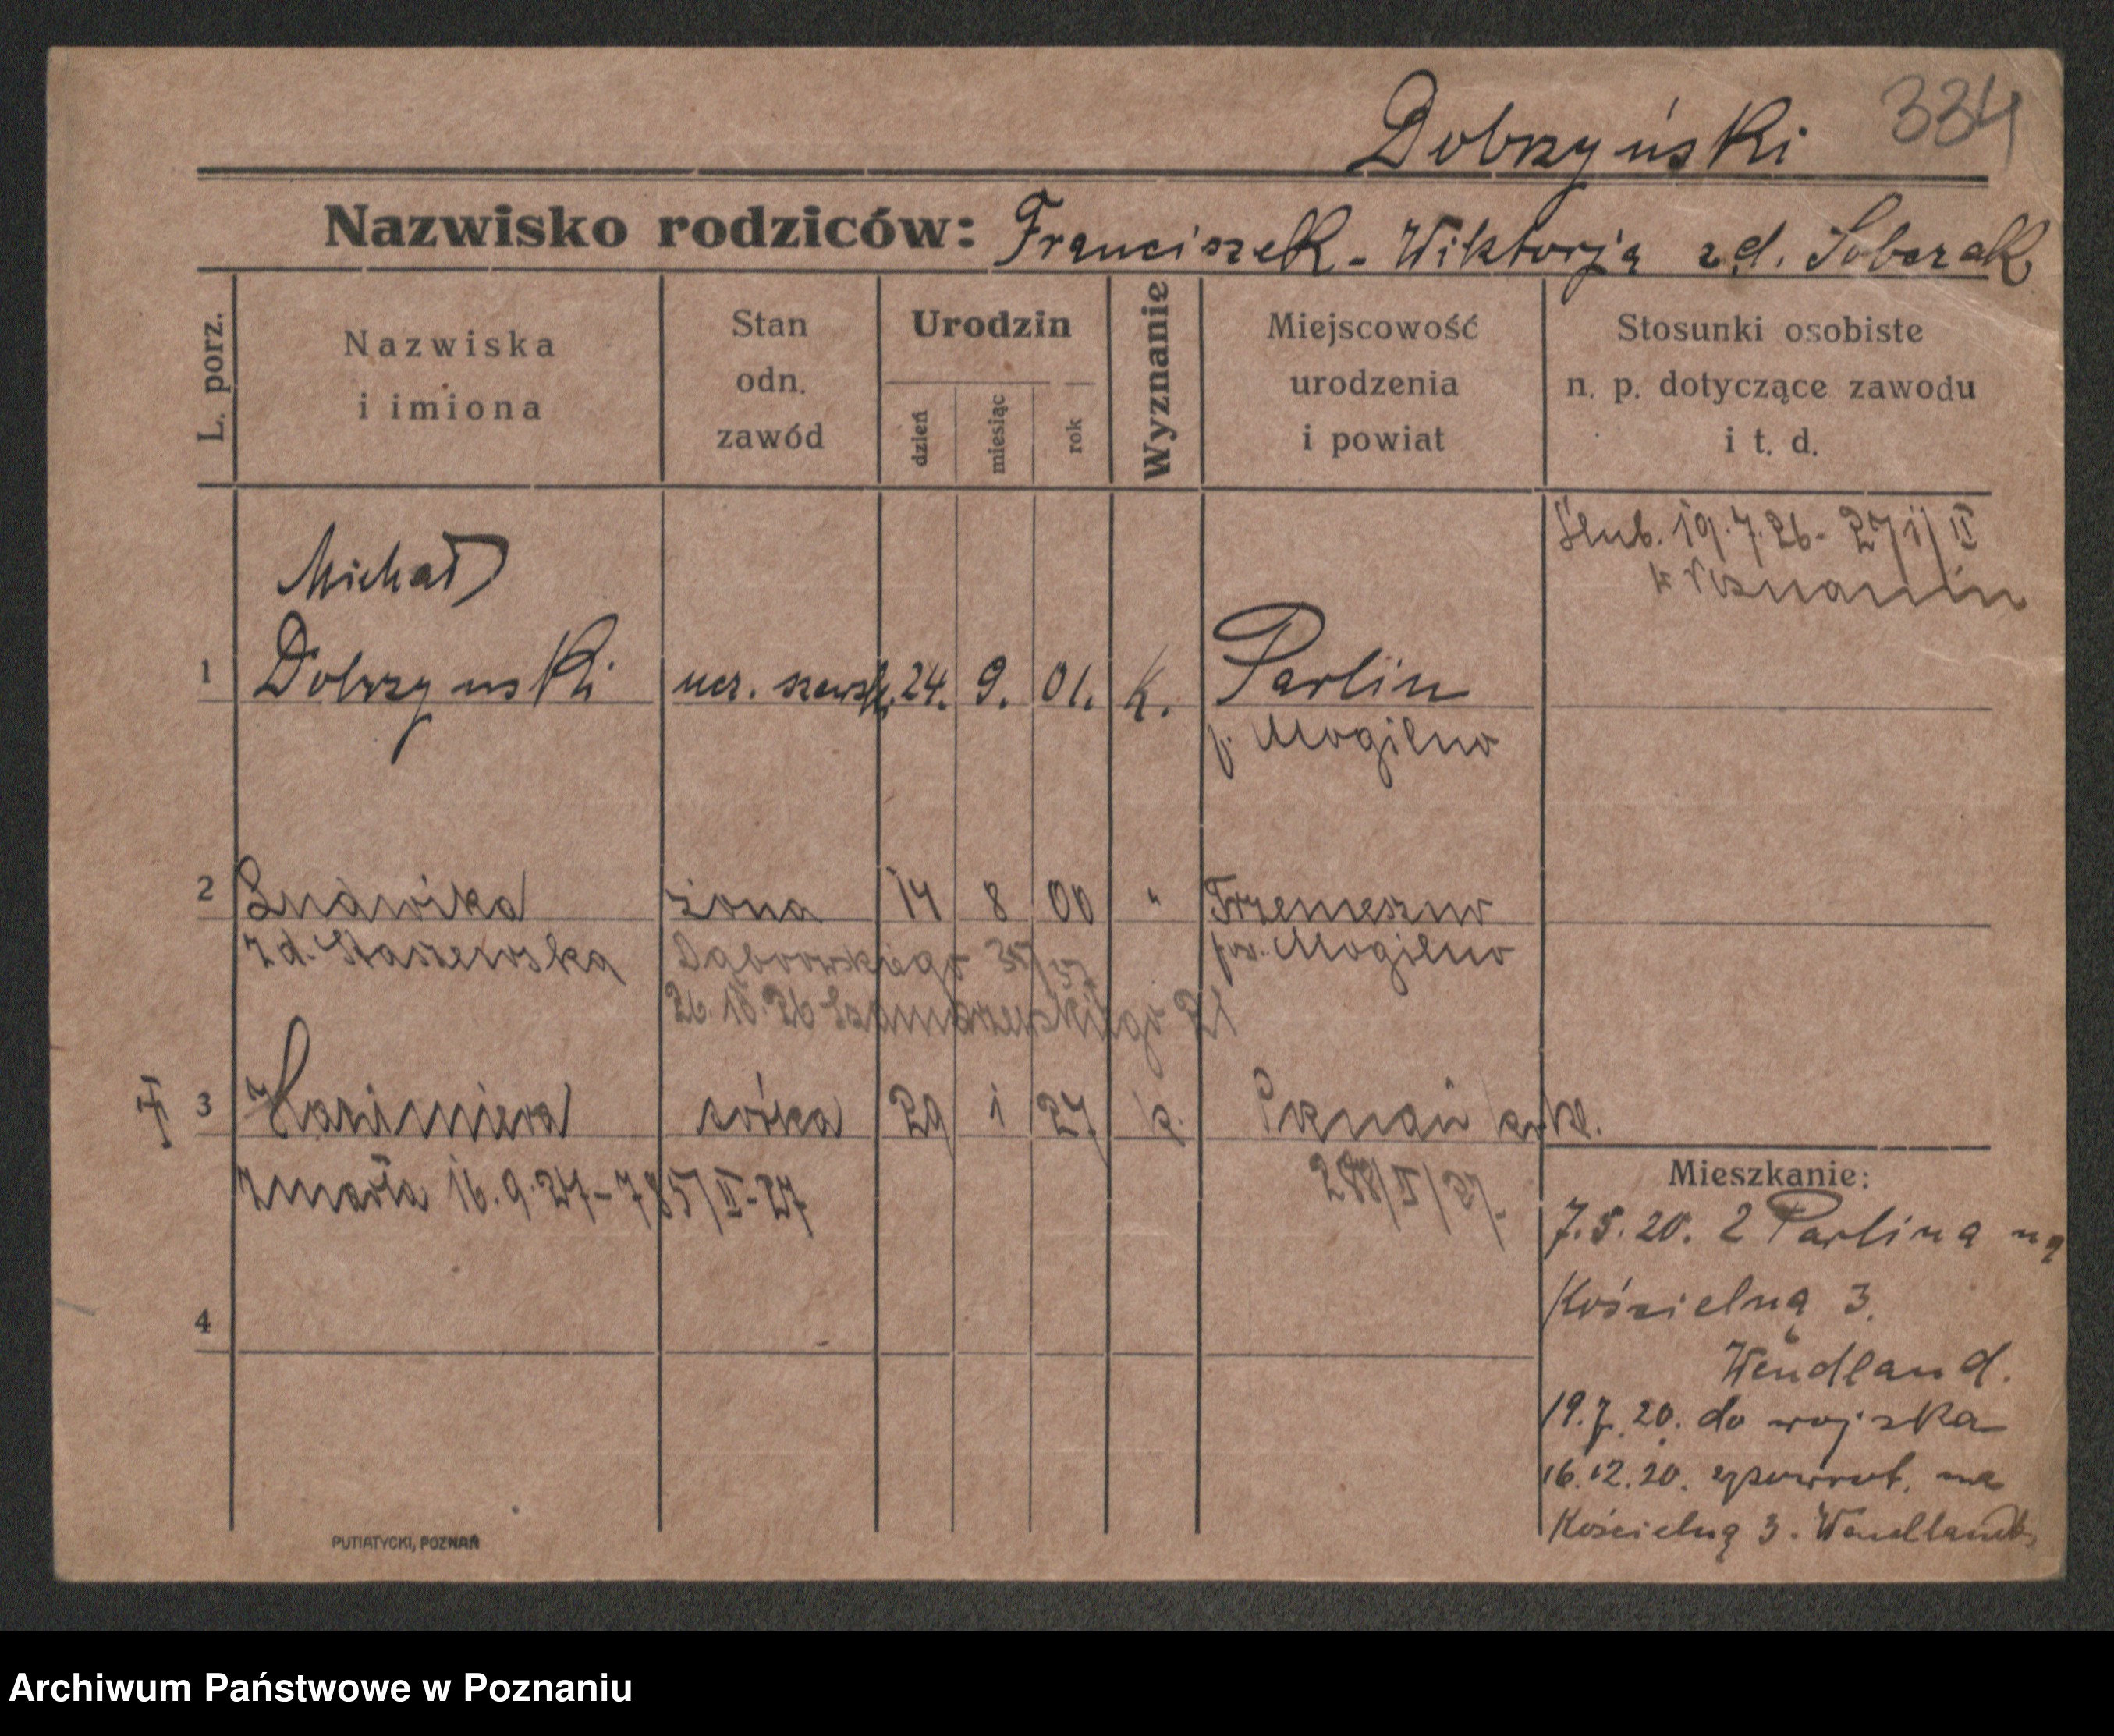 Dobrzyński 334
Nazwisko rodziców: Franciszek - Wiktorja z d. Sobczak
L. porz.
Nazwiska
i imiona
Stan
odn.
zawód
Urodzin
dzień
miesiąc
rok
Wyznanie
Miejscowość
urodzenia
i powiat
Stosunki osobiste
n. p. dotyczące zawodu
i t. d.
Ślub. 19.7.26 -
w Poznaniu
Michał
1 Dobrzyński ucz. szewsk. 24. 9. 01. k. Parlin
p. Mogilno
2 Ludwika żona 14 8 00 " Trzemeszno
z d. Staszewska Dąbrowskiego pow. Mogilno
26.10.26 Szamarzewskiego 21
3 Kazimiera córka 29 1 27 k. Poznań
zmarła 16.9.27 - 785/II-27
Mieszkanie:
7.5.20. z Parlina na
Kościelną 3.
Wendland.
4
19.7.20. do wojska
16.12.20. zpowrot. na
Kościelną 3. Wendland
PUTIATYCKI, POZNAŃ
Archiwum Państwowe w Poznaniu